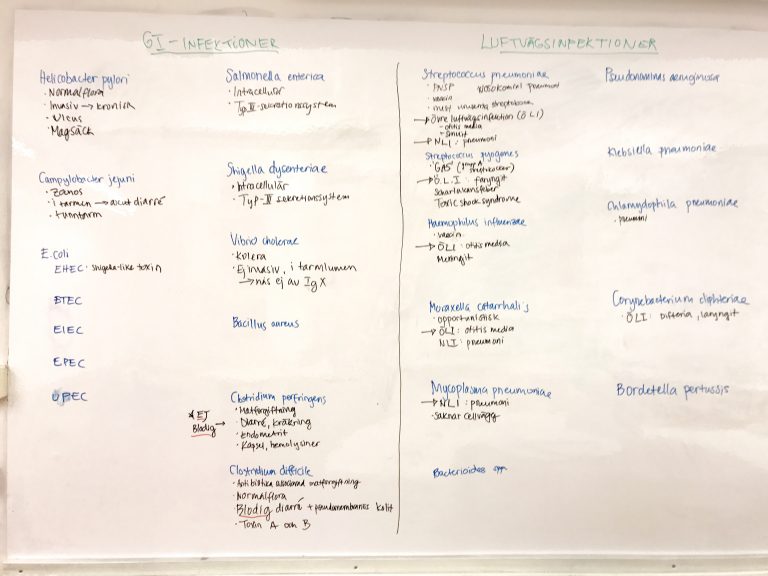 GI-INFEKTIONER
Helicobacter pylori
· Normalflora
· Invasiv → kronisk
· Ulcus
· Magsäck
Campylobacter jejuni
· Zoonos
· i tarmen → acut diarré
· tunntarm
E.coli
EHEC · Shigella-like toxin
ETEC
EIEC
EPEC
UPEC
Salmonella enterica
· Intracellulär
· Typ III-sekretionssystem
Shigella dysenteriae
· Intracellulär
· Typ-III sekretionssystem
Vibrio cholerae
· Kolera
· Ej invasiv, i tarmlumen
→ nås ej av Ig X
Bacillus aureus
Clostridium perfringens
· Matförgiftning
* EJ Blodig → · Diarré, kräkning
· Endometrit
· Kapsel, hemolysiner
Clostridium difficile
· Antibiotika associerad matförgiftning
· Normalflora
· Blodig diarré + pseudomembranös kolit
· Toxin A och B
LUFTVÄGSINFEKTIONER
Streptococcus pneumoniae
· PNSP
nosokomiel pneumoni
· vaccin
→ Övre luftvägsinfektion (ÖLI)
- otitis media
- sinuit
→ NLI : pneumoni
Streptococcus pyogenes
· "GAS"
→ Ö.L.I : faryngit
Scharlakansfeber
Toxic shock syndrome
Haemophilus influenzae
· vaccin
→ ÖLI : otitis media
Meningit
Moraxella catarrhalis
· opportunistisk
→ ÖLI : otitis media
NLI : pneumoni
Mycoplasma pneumoniae
→ NLI : pneumoni
· Saknar cellvägg
Bacterioides spp.
Pseudonomas aeruginosa
Klebsiella pneumoniae
Chlamydophila pneumoniae
· pneumoni
Corynebacterium diphteriae
· ÖLI : Difteria, laryngit
Bordetella pertussis